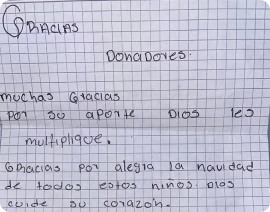 Gracias
Donadores.
muchas Gracias
por su aporte Dios les
multiplique.
Gracias por alegra la navidad
de todos estos ninos. Dios
cuide su corazón.